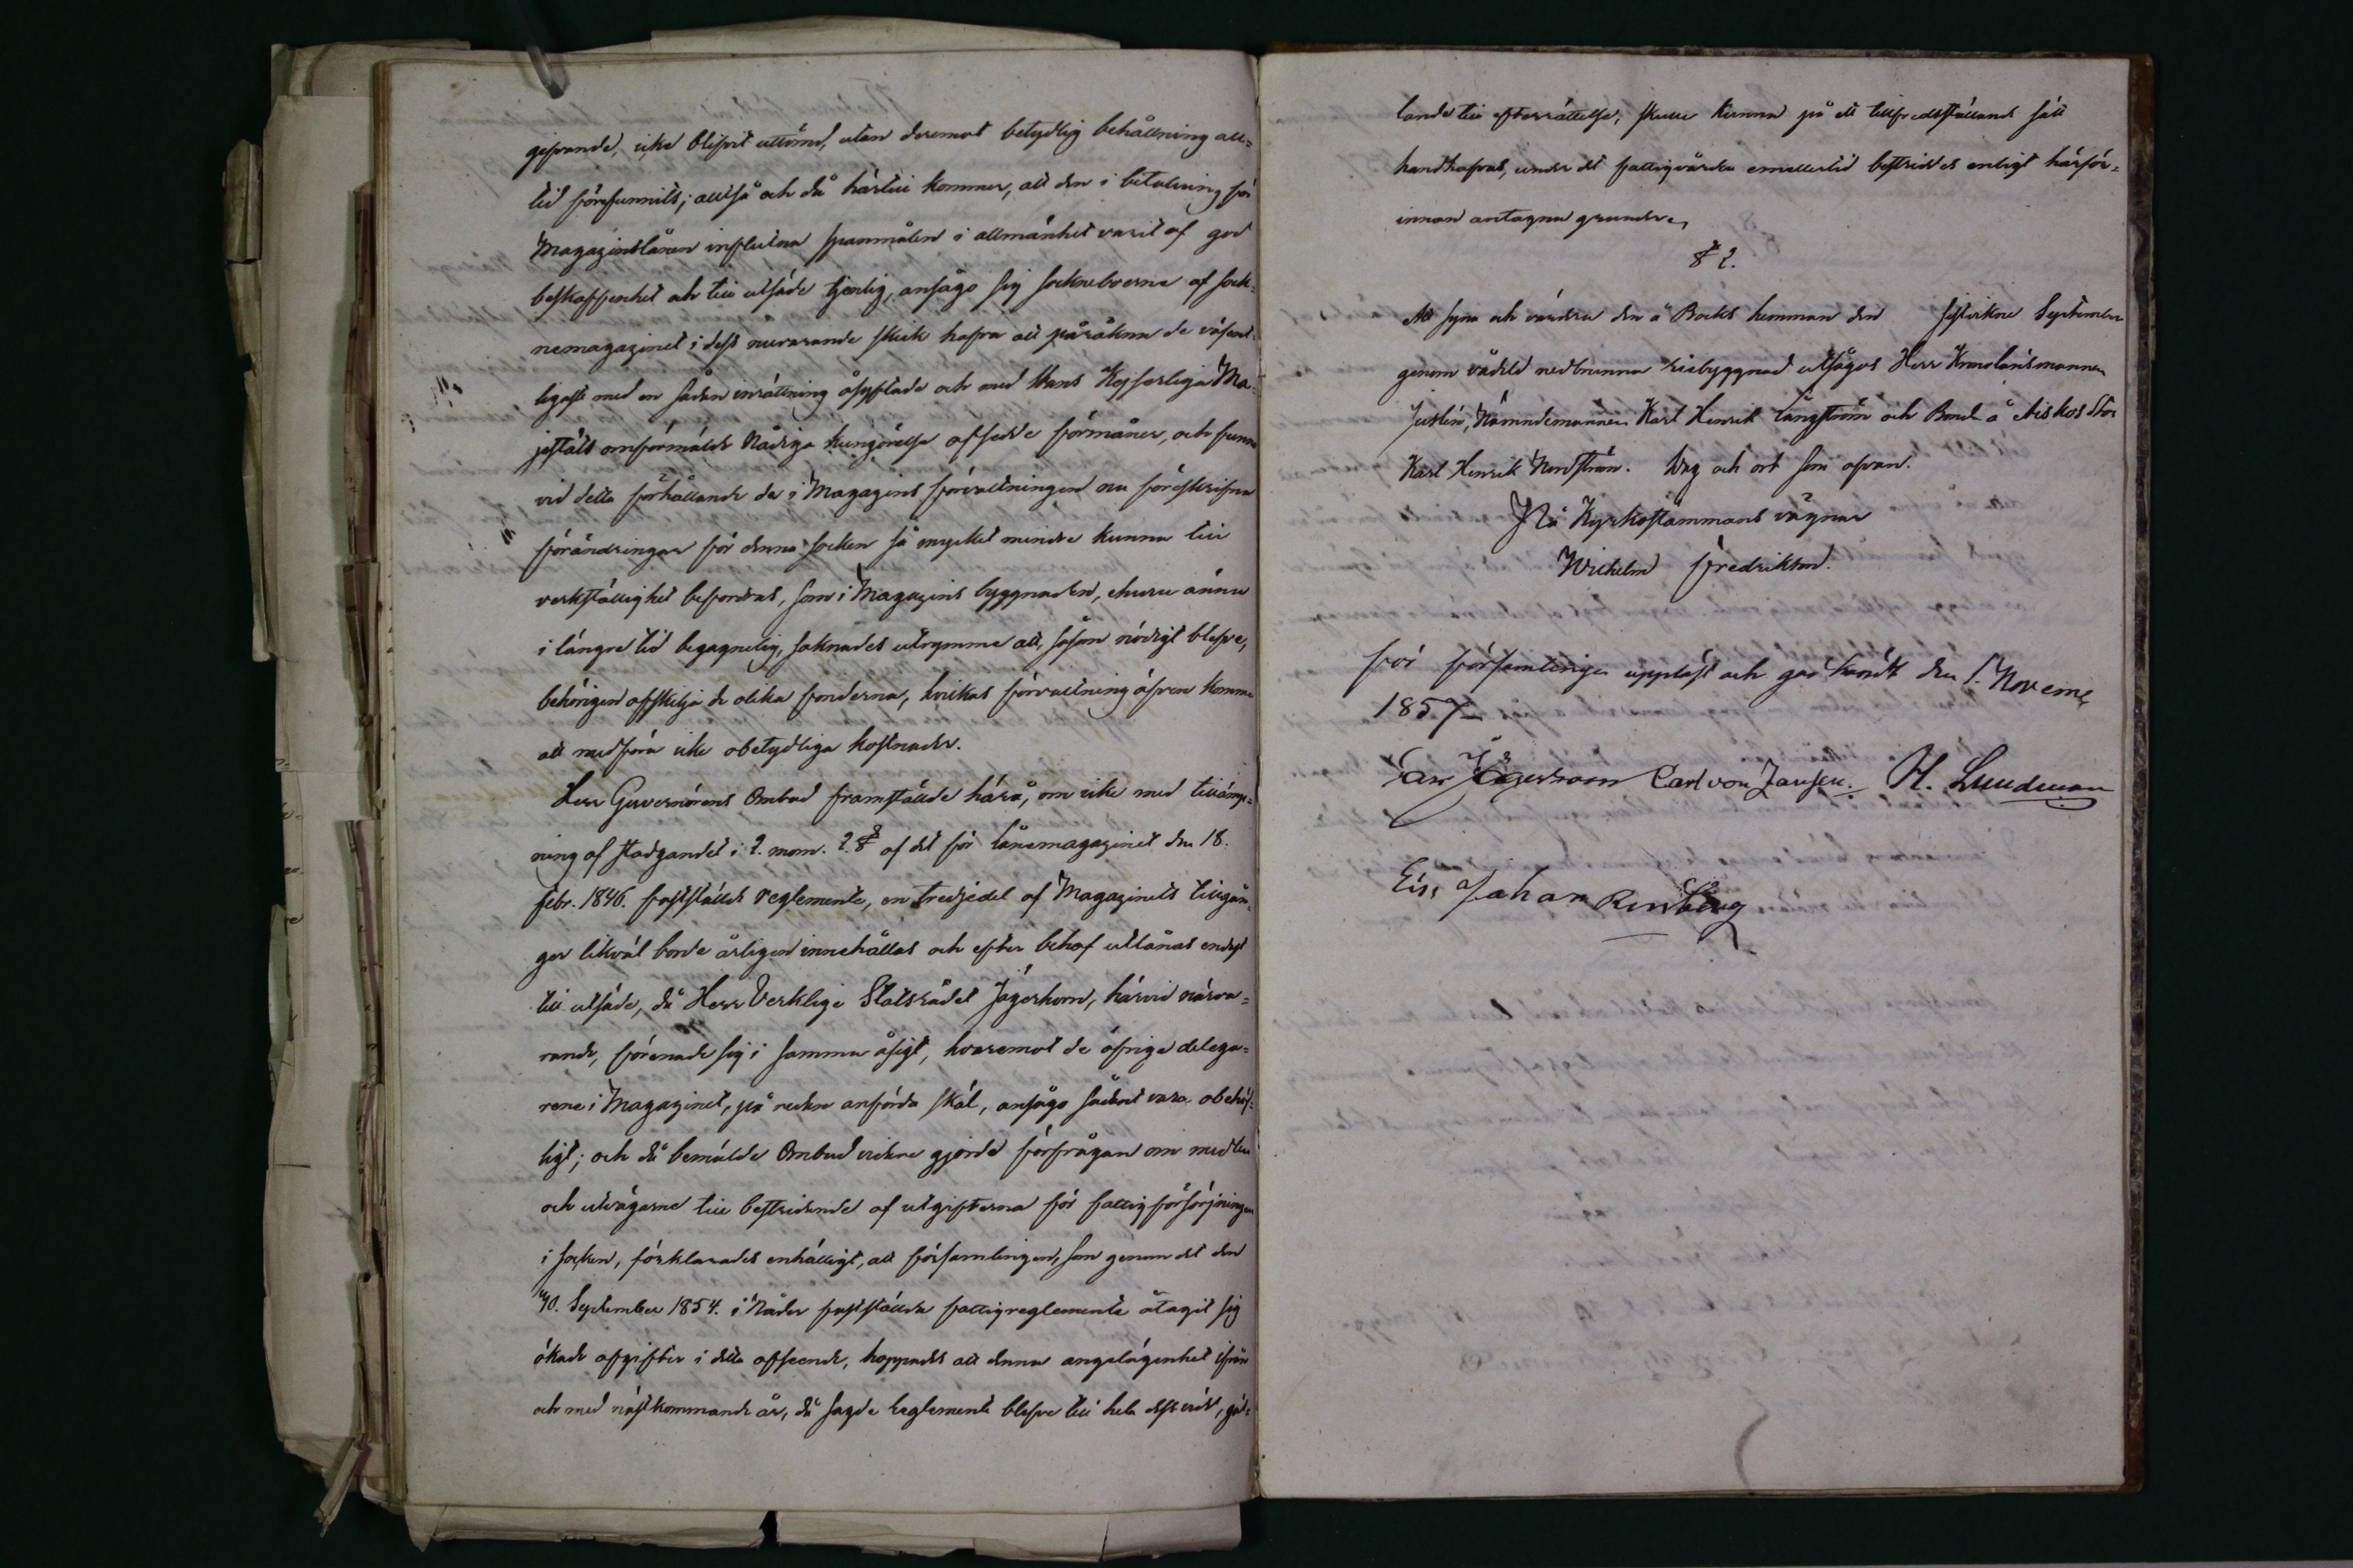 gifvande, icke blifvit uttömd, utan deremot betydlig behållning all-
tid förefunnits; alltså och då härtill kommer, att den i betalning för
Magazinslånen influtna spannmålen i allmänhet varit af god
beskaffenhet och till utsäde tjenlig, ansågo sig sockneboerne af sock-
nemagazinet i dess nuvarande skick hafva att påräkna de väsent-
ligaste med en sådan inrättning åsyftade och med Hans Kejserliga Ma-
jestäts omförmälde Nådiga kungörelse afsedde förmåner, och funno
vid detta förhållande de i Magazins förvaltningen nu föreskrifna
förändringar för denna socken så mycket mindre kunna till
verkställighet befordras, som i Magazins byggnaden, ehuru ännu
i längre tid begagnelig, saknades utrymme att, såsom nödigt blefve,
behörigen afskilja de olika fonderna, hvilkas förvaltning äfven komme
att medföra icke obetydliga kostnader.
Herr Guvernörens Ombud framställde härå, om icke med tillämp-
ning af stadgandet i 2. mom. 2. § af det för lånemagazinet den 18.
febr. 1846. fastställde reglemente, en tredjedel af Magazinets tillgån-
gar likväl borde årligen innehållas och efter behof utlånas endast
till utsäde, då Herr Verklige Statsrådet Jägerhorn, härvid närva-
rande, förenade sig i samma åsigt, hvaremot de öfrige delega-
rene i Magazinet, på redan anförda skäl, ansågo sådant vara obehöf-
ligt; och då bemälde Ombud vidare gjorde förfrågan om medlen
och utvägarne till bestridande af utgifterna för fattigförsörjningen
i socken, förklarades enhälligt, att församlingen, som genom det den
10. September 1854. i Nåder fastställda fattigreglemente åtagit sig
ökade afgifter i detta afseende, hoppades att denna angelägenhet ifrån
och med nästkommande år, då sagde reglemente blefve till hela dess vidd, gäl-
lande till efterrättelse, skulle kunna på ett tillfredsställande sätt
handhafvas, under det fattigvården emellertid bestriddes enligt härför-
innan antagna grunder.
§ 2.
Att syna och värdera den å Backs hemman den sistvikne September
genom vådeld nedbrunna riebyggnad utsågos Herr Kronolänsmannen
Justén, Nämndemannen Karl Henrik Långström och Bonde å Aiskos Stor
Karl Henrik Nordström. Dag och ort som ofvan.
På Kyrkostämmans vägnar
Wilhelm Fredrikson.
för församlingen uppläst och godkändt den 1. Novemb.
1857
Jägerhorn Carl von Jansen. H. Lundman
Johan